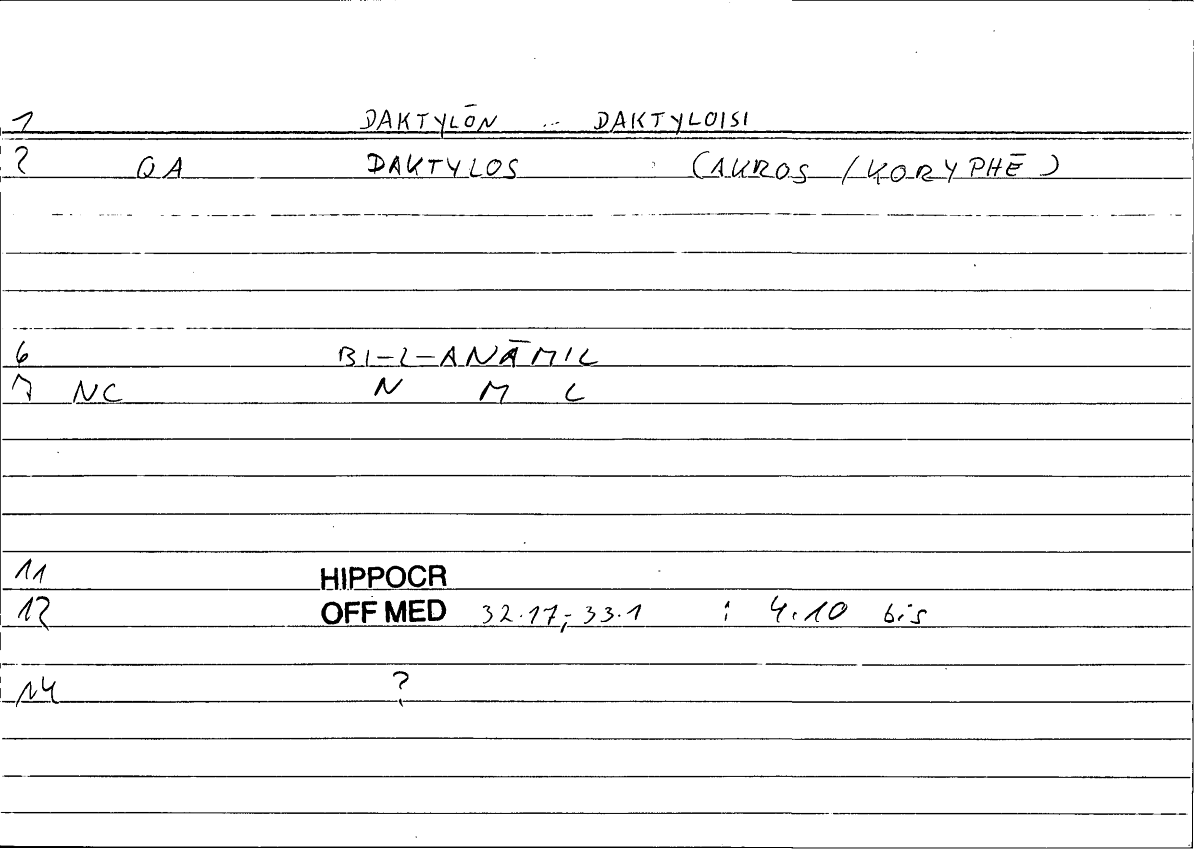 1 DAKTYLŌN .. DAKTYLOISI
2 QA DAKTYLOS (AKROS / KORYPHĒ)
6 BI-L-ANĀMIL
7 NC N M L
11 HIPPOCR
12 OFF MED 32.17; 33.1 : 4.10 bis
14 ?